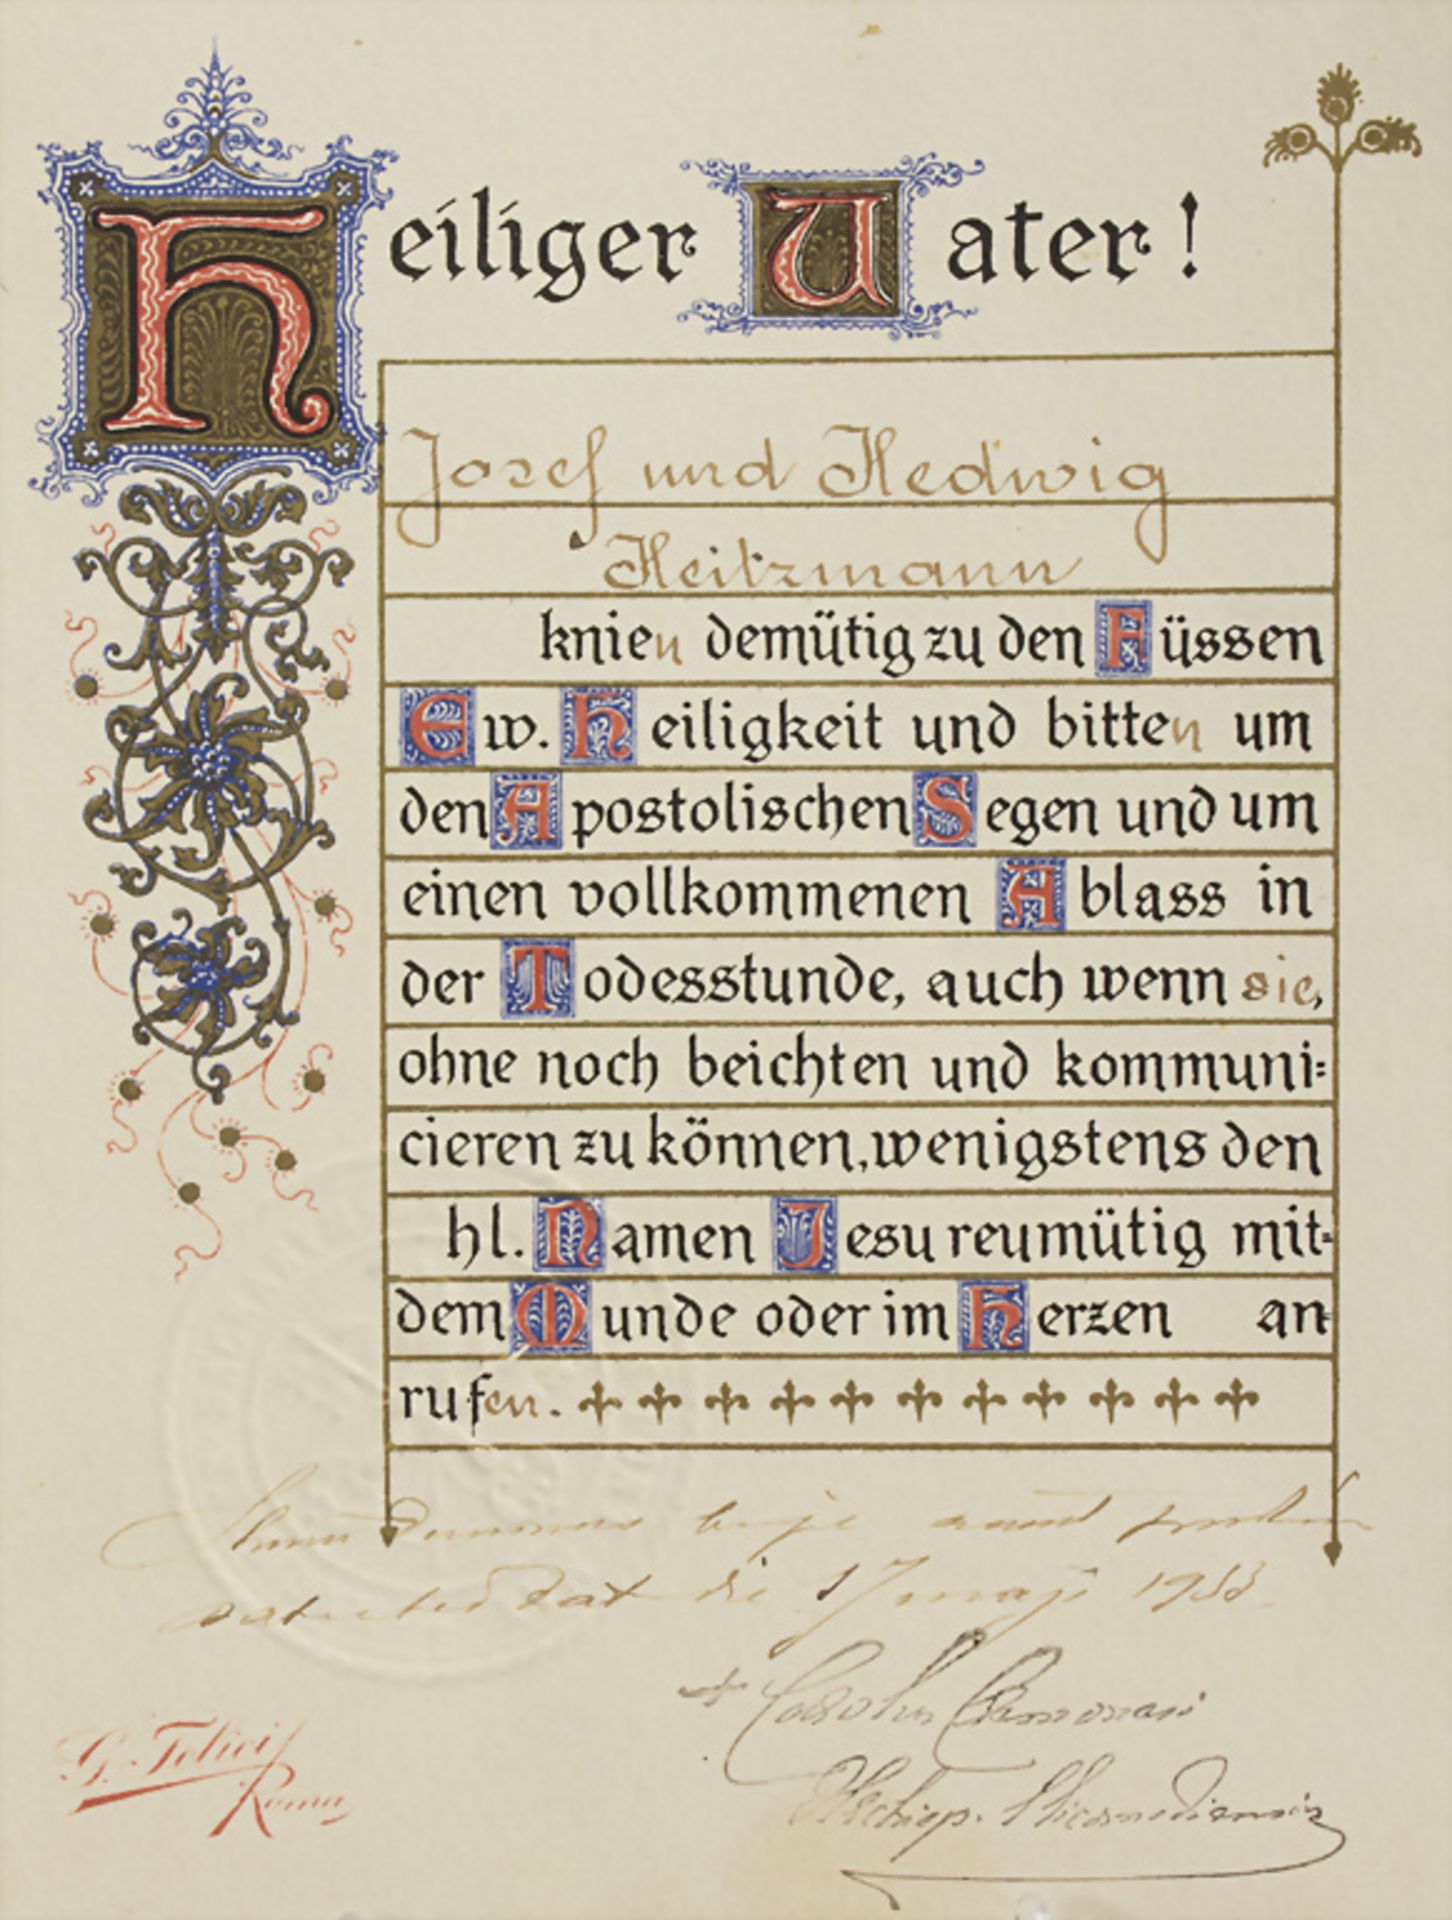 Heiliger Vater!
Josef und Hedwig
Heitzmann
knien demütig zu den Füssen
Ew. Heiligkeit und bitten um
den Apostolischen Segen und um
einen vollkommenen Ablass in
der Todesstunde, auch wenn sie,
ohne noch beichten und kommuni=
cieren zu können, wenigstens den
hl. Namen Jesu reumütig mit=
dem Munde oder im Herzen an=
rufen.
die 17
G. Felici
Roma